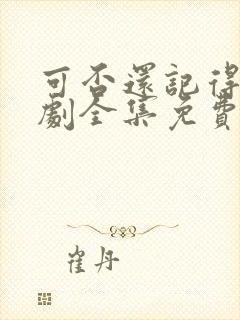 可否還記得
劇全集免費
崔丹